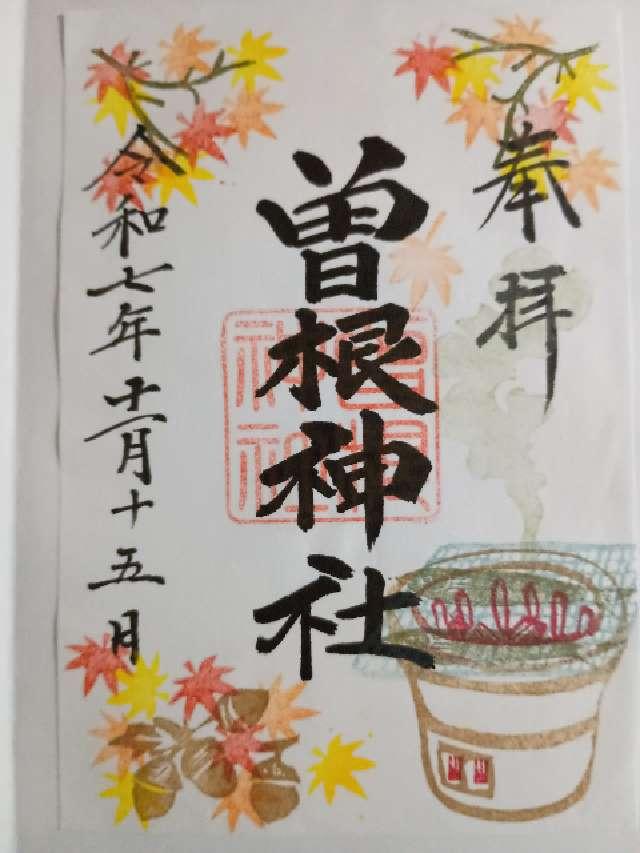 奉拝
曽根神社
曽根
神社
令和七年十一月十五日